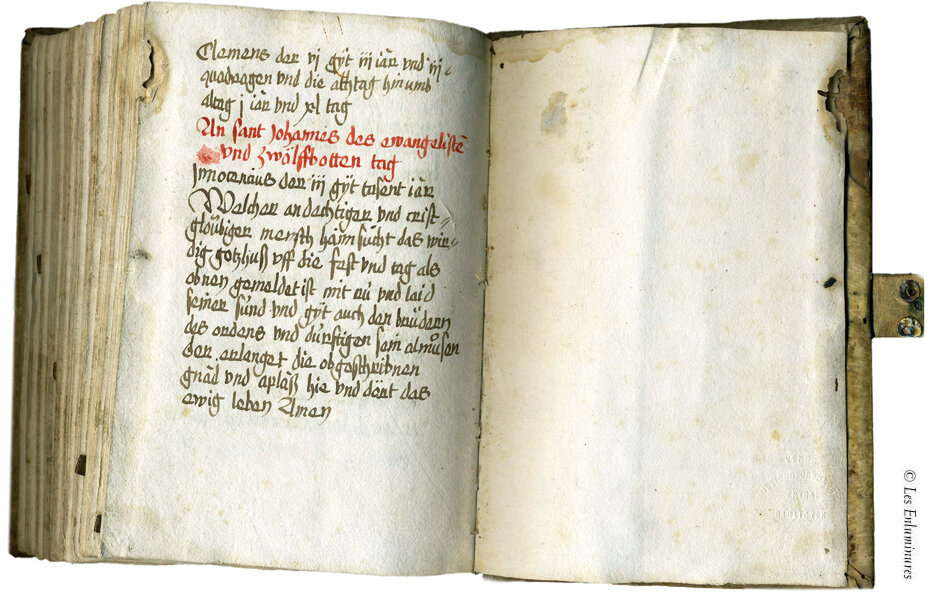 Clemens der vj gÿt iij iär vnd iij
quadragen vnd die achtag hin umb
altag j iär vnd xl tag
An sant Johannes des ewangelisten
vnd zwölffbotten tag
Jnnocencius der iij gÿt tusent iär
Welcher andechtiger vnd crist=
gloübiger mensch haimsücht das wir=
dig gotzhuss vff die fest vnd tag als
obnen gemeldet ist mit rü vnd laid
seiner sünd vnd gÿt auch den brüdern
des ordens vnd dürfftigen sein almüsen
der erlanget die obgeschribnen
gnäd vnd apläss hie vnd dört das
ewig leben Amen
© Les Enluminures